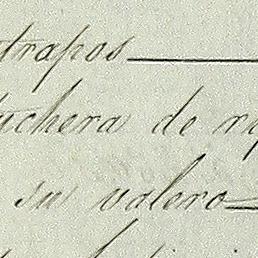 trapos
uchera de
su valero